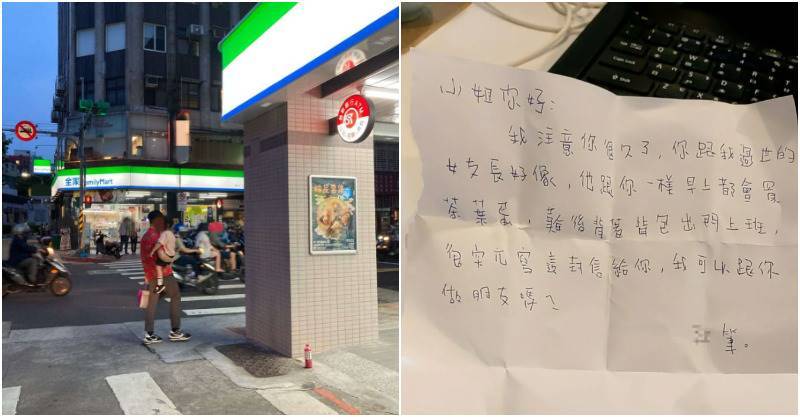 全家 FamilyMart
ATM
小姐你好:
我注意你很久了,你跟我過世的
女友長好像,他跟你一樣早上都會買
茶葉蛋,然後背著背包出門上班,
很突兀寫這封信給你,我可以跟你
做朋友嗎?
筆。